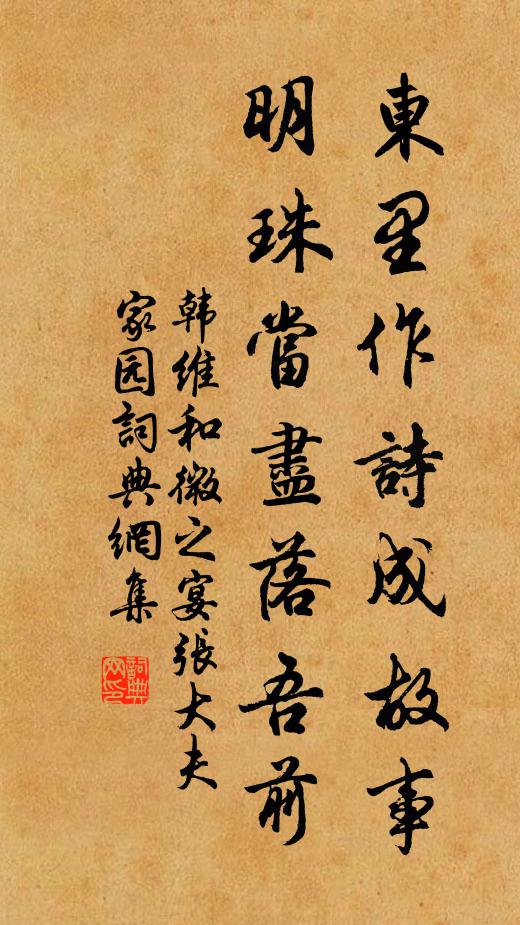 東里作詩成故事
明珠當盡落吾前
韩維和微之宴張大夫
家园詞典網集
詞典网印